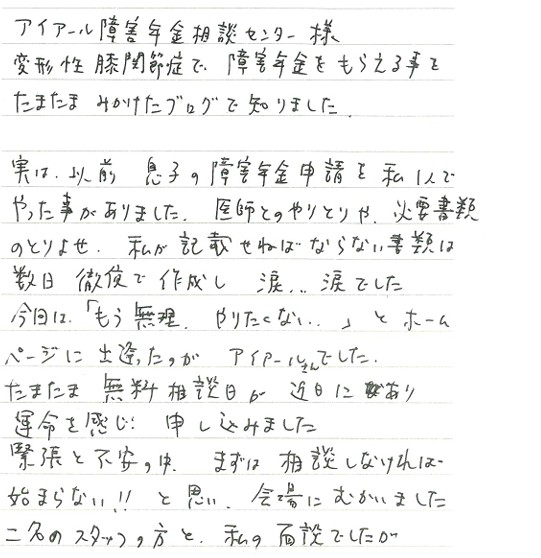 アイアール障害年金相談センター様
変形性膝関節症で、障害年金をもらえる事を
たまたま みかけたブログで知りました
実は、以前 息子の障害年金申請を私1人で
やった事がありました。医師とのやりとりや、必要書類
のとりよせ、私が記載せねばならない書類は
数日 徹夜で作成し 涙...涙でした
今回は、「もう無理、やりたくない..」とホーム
ページに出逢ったのが アイアールさんでした。
たまたま 無料相談日が 近日にあり
運命を感じ 申し込みました
緊張と不安の中、まずは 相談しなければ
始まらない!!と思い、会場にむかいました
二名のスタッフの方と、私の面談でしたが